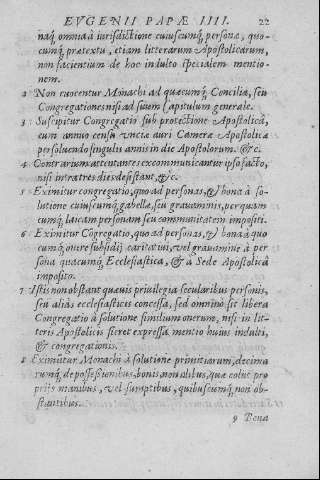 EVGENII PAPÆ IIII. 22
naq; omnia à iurisdictione cuiuscumq; personæ, quo-
cumq; prætextu, etiam litterarum Apostolicarum,
non facientium de hoc indulto specialem mentio-
nem.
2 Non vocentur Monachi ad quæcumq; Concilia, seu
Congregationes nisi ad suum Capitulum generale.
3 Suscipitur Congregatio sub protectione Apostolica,
cum annuo censu vnciæ auri Cameræ Apostolicæ
persoluendo singulis annis in die Apostolorum. &c.
4 Contrarium attentantes excommunicantur ipso facto,
nisi intra tres dies desistant, &c.
5 Eximitur congregatio, quo ad personas, & bona à so-
lutione cuiuscumq; gabellæ, seu grauaminis, per quam
cumq; laicam personam seu communitatem impositi.
6 Eximitur Cōgregatio, quo ad personas, & bona à quo
cumq; onere subsidij caritatiui, vel grauamine à per
sona quacumq; Ecclesiastica, & à Sede Apostolica
imposito.
7 Istis non obstant quæuis priuilegia secularibus personis,
seu aliàs ecclesiasticis concessa, sed omninò sit libera
Congregatio à solutione similium onerum, nisi in lit-
teris Apostolicis fieret expressa mentio huius indulti,
& congregationis.
8 Eximütur Monachi à solutione primitiarum, decima
rumq; de possessionibus, bonis, nonalibus, quæ colūt pro
prijs manibus, vel sumptibus, quibuscumq; non ob-
stantibus.
9 Bona